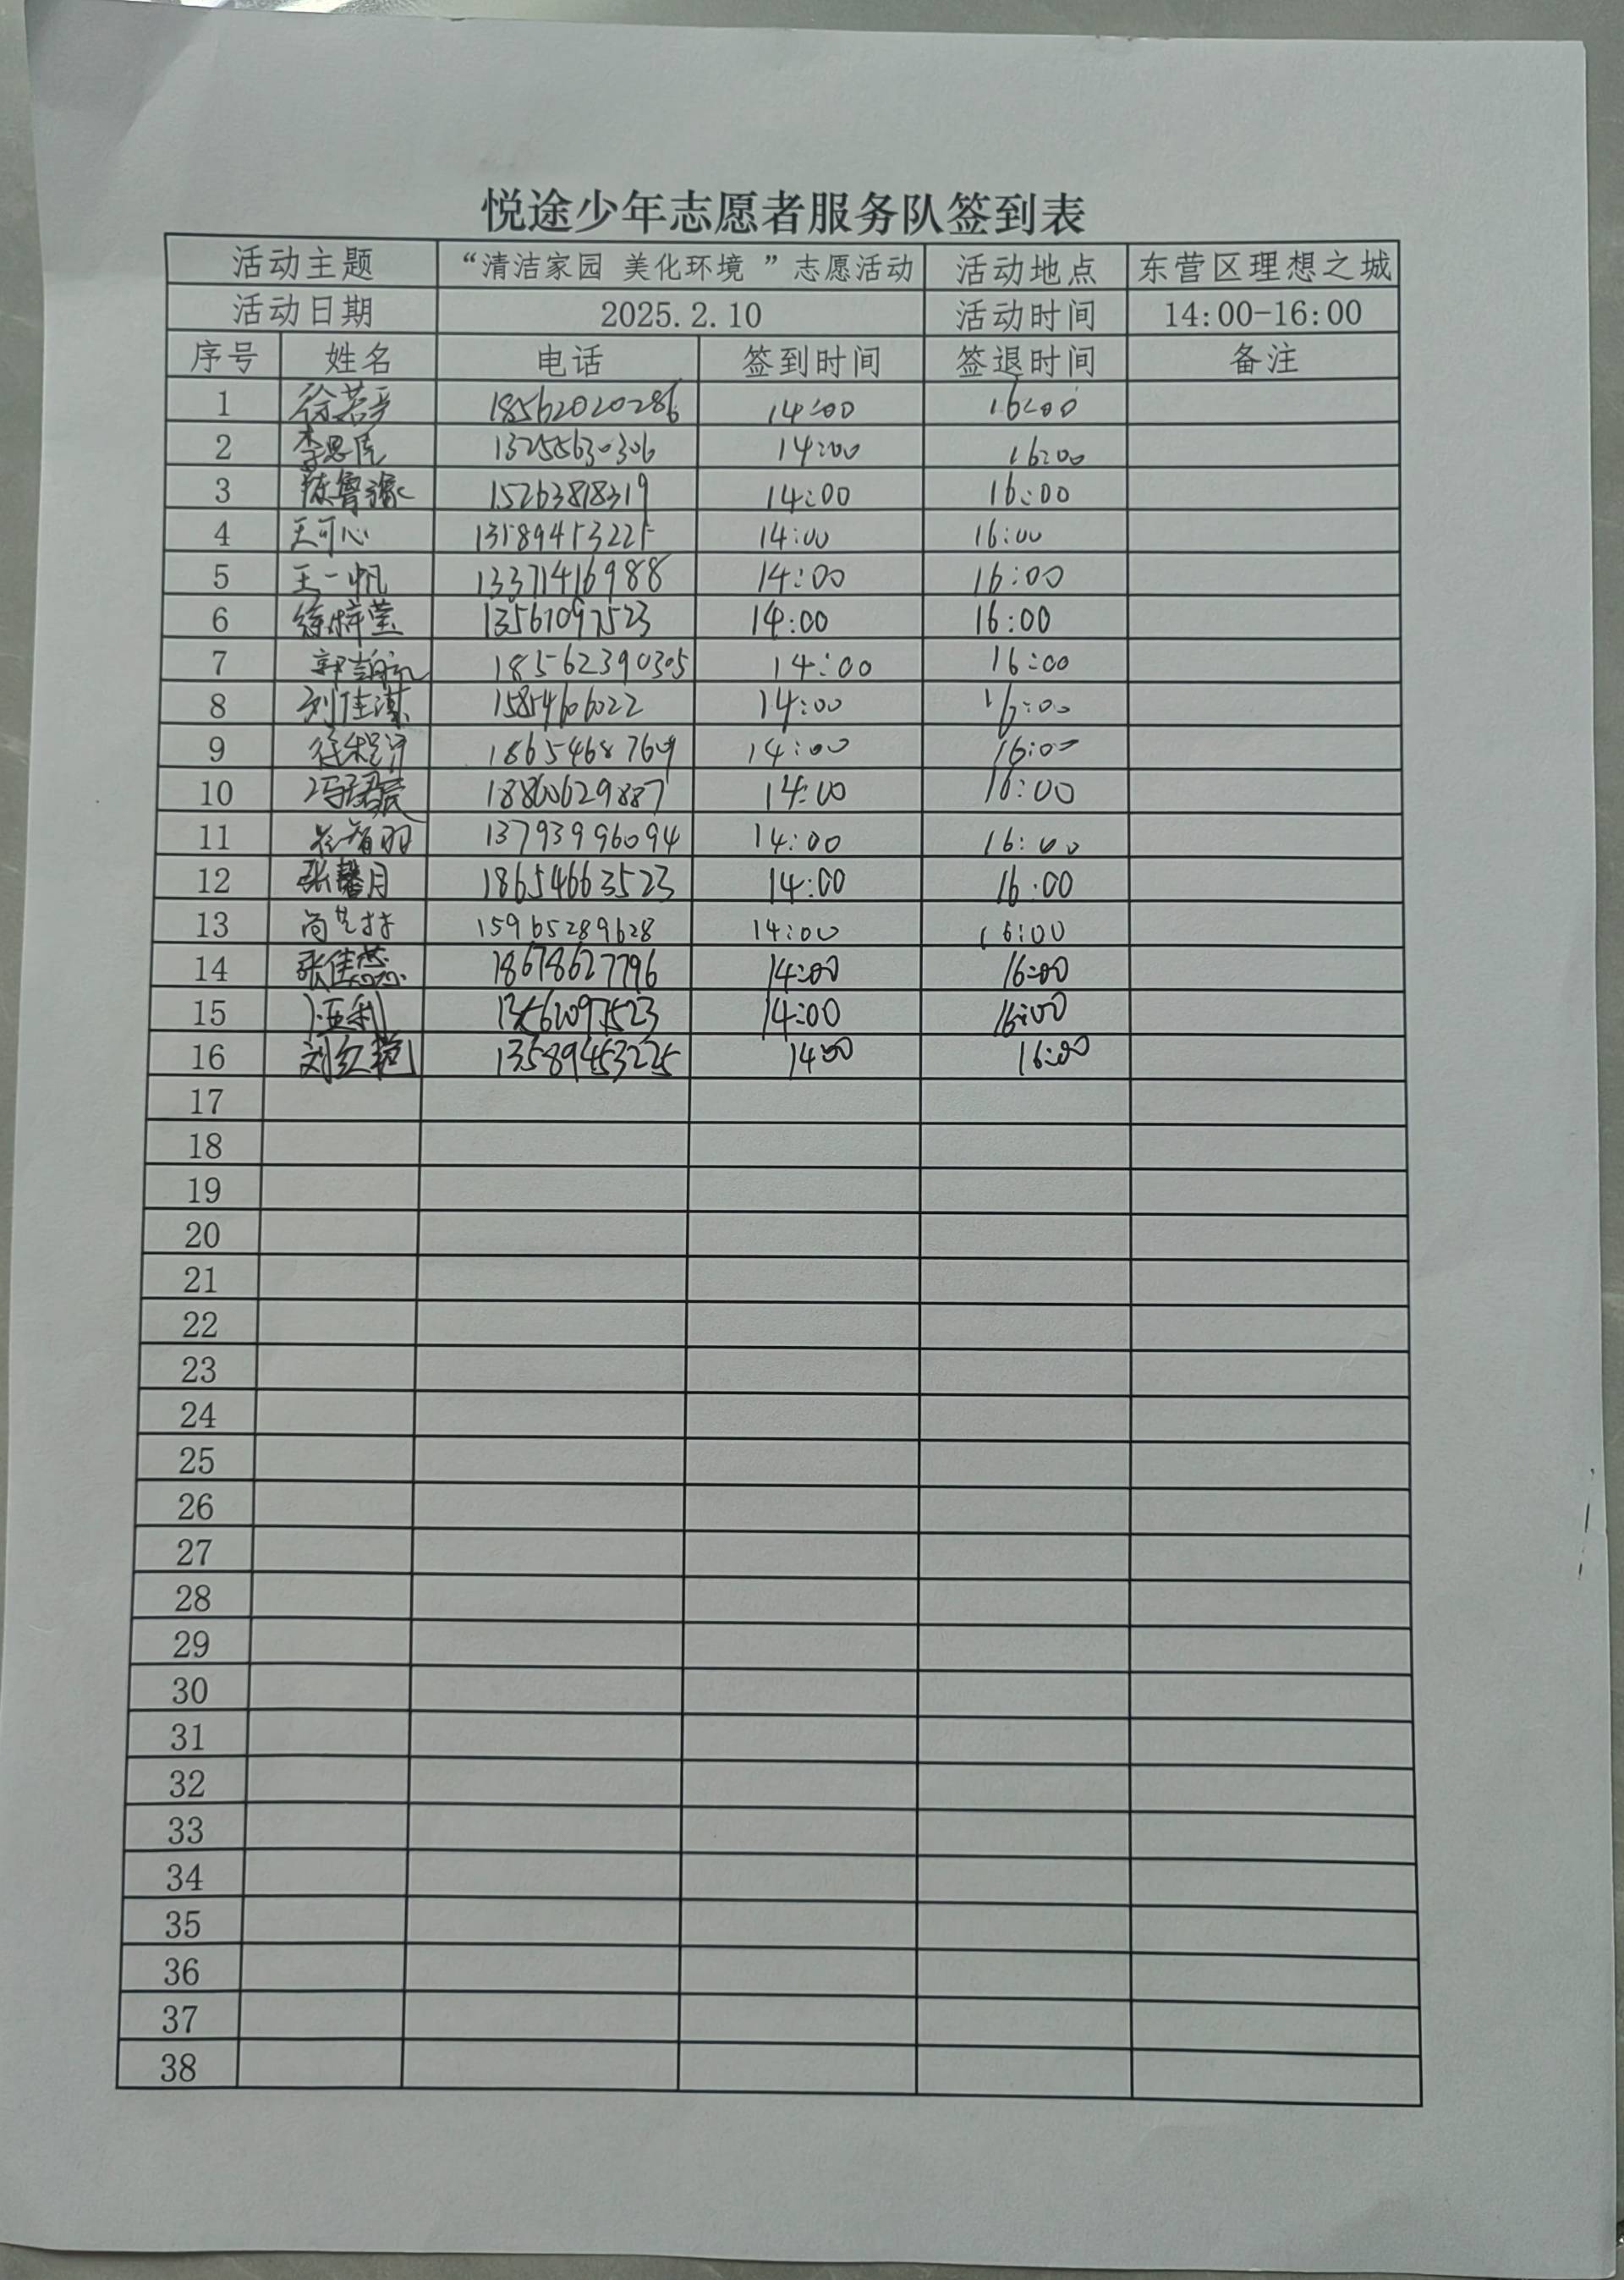 悦途少年志愿者服务队签到表
活动主题 “清洁家园 美化环境 ”志愿活动 活动地点 东营区理想之城
活动日期 2025.2.10 活动时间 14:00-16:00
序号 姓名 电话 签到时间 签退时间 备注
1 18562020286 14:00 16:00
2 13255630306 14:00 16:00
3 15263818319 14:00 16:00
4 王可心 13589453225 14:00 16:00
5 王一帆 13371416988 14:00 16:00
6 徐梓莹 13561097523 14:00 16:00
7 18562390305 14:00 16:00
8 刘佳淇 15854606022 14:00 16:00
9 14:00 16:00
10 18860629887 14:00 16:00
11 13793996094 14:00 16:00
12 张馨月 18654663523 14:00 16:00
13 15965289628 14:00 16:00
14 张佳蕊 18678627796 14:00 16:00
15 14:00 16:00
16 刘红艳 13589453225 14:00 16:00
17
18
19
20
21
22
23
24
25
26
27
28
29
30
31
32
33
34
35
36
37
38